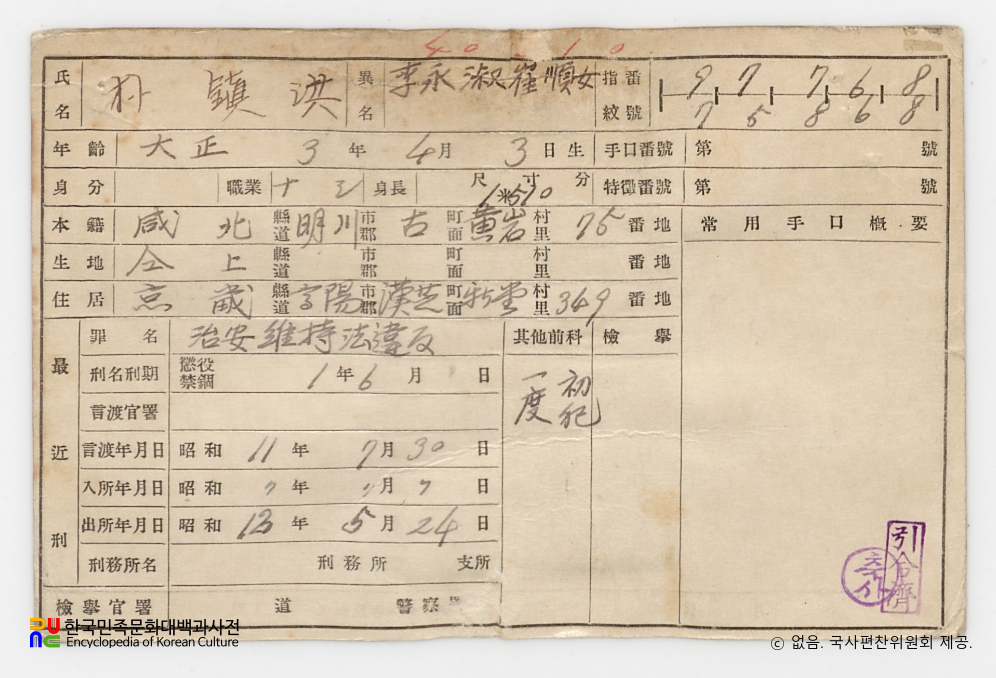 4 0 1 0
氏名 朴 鎭 洪 異名 李永淑 崔順女 指紋番號 9 7 7 6 8
7 5 8 6 8
年齡 大正 3 年 4 月 3 日生 手口番號 第 號
身分 職業 ナシ 身長 尺 寸 分 1米510 特徵番號 第 號
本籍 咸 北 縣道 明川 市郡 古 町面 黃岩 村里 75 番地 常用手口槪要
生地 仝 上 縣道 市郡 町面 村里 番地
住居 京 畿 縣道 高陽 市郡 漢芝 町面 新堂 村里 349 番地
最近刑
罪名 治安維持法違反 其他前科 檢擧
刑名刑期 懲役 禁錮 1 年 6 月 日 初犯 一度
言渡官署
言渡年月日 昭和 11 年 7 月 30 日
入所年月日 昭和 〃 年 〃 月 〃 日
出所年月日 昭和 13 年 5 月 24 日
刑務所名 刑務所 支所
檢擧官署 道 警察署
引合濟
한국민족문화대백과사전
Encyclopedia of Korean Culture
ⓒ 없음. 국사편찬위원회 제공.